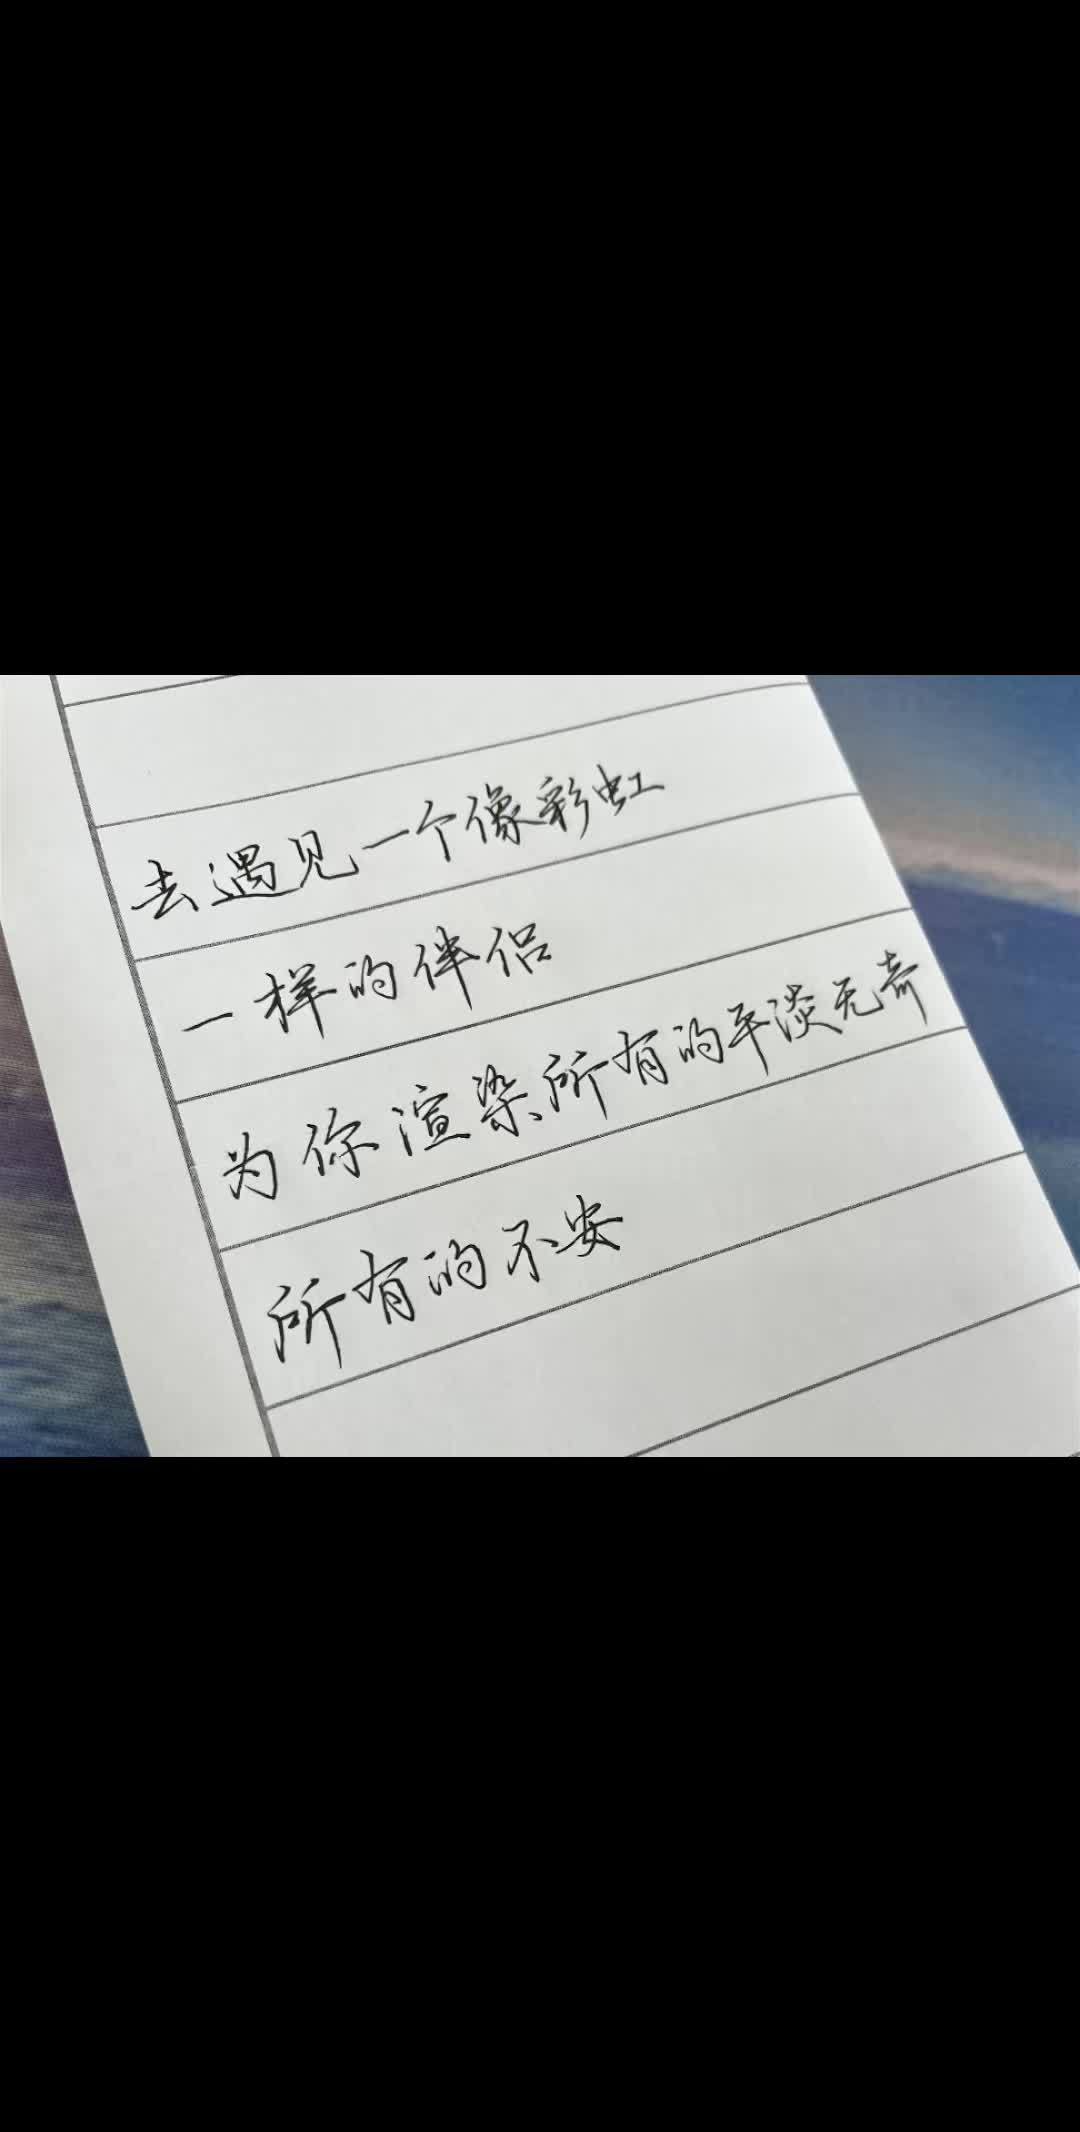 去遇见一个像彩虹
一样的伴侣
为你渲染所有的平淡无奇
所有的不安